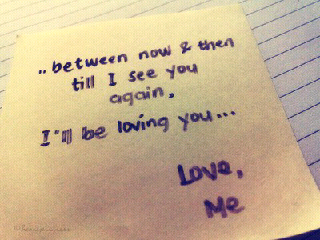 "between now & then
till I see you
again,
I'll be loving you...
Love,
Me